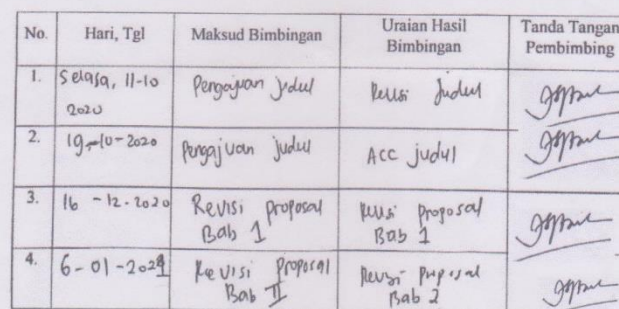 No. Hari, Tgl Maksud Bimbingan Uraian Hasil Bimbingan Tanda Tangan Pembimbing
1. Selasa, 11-10 2020 Pengajuan judul Revisi judul
2. 19-10-2020 Pengajuan judul ACC judul
3. 16-12-2020 Revisi proposal Bab 1 Revisi proposal Bab 1
4. 6-01-2021 Revisi proposal Bab II Revisi proposal Bab 2